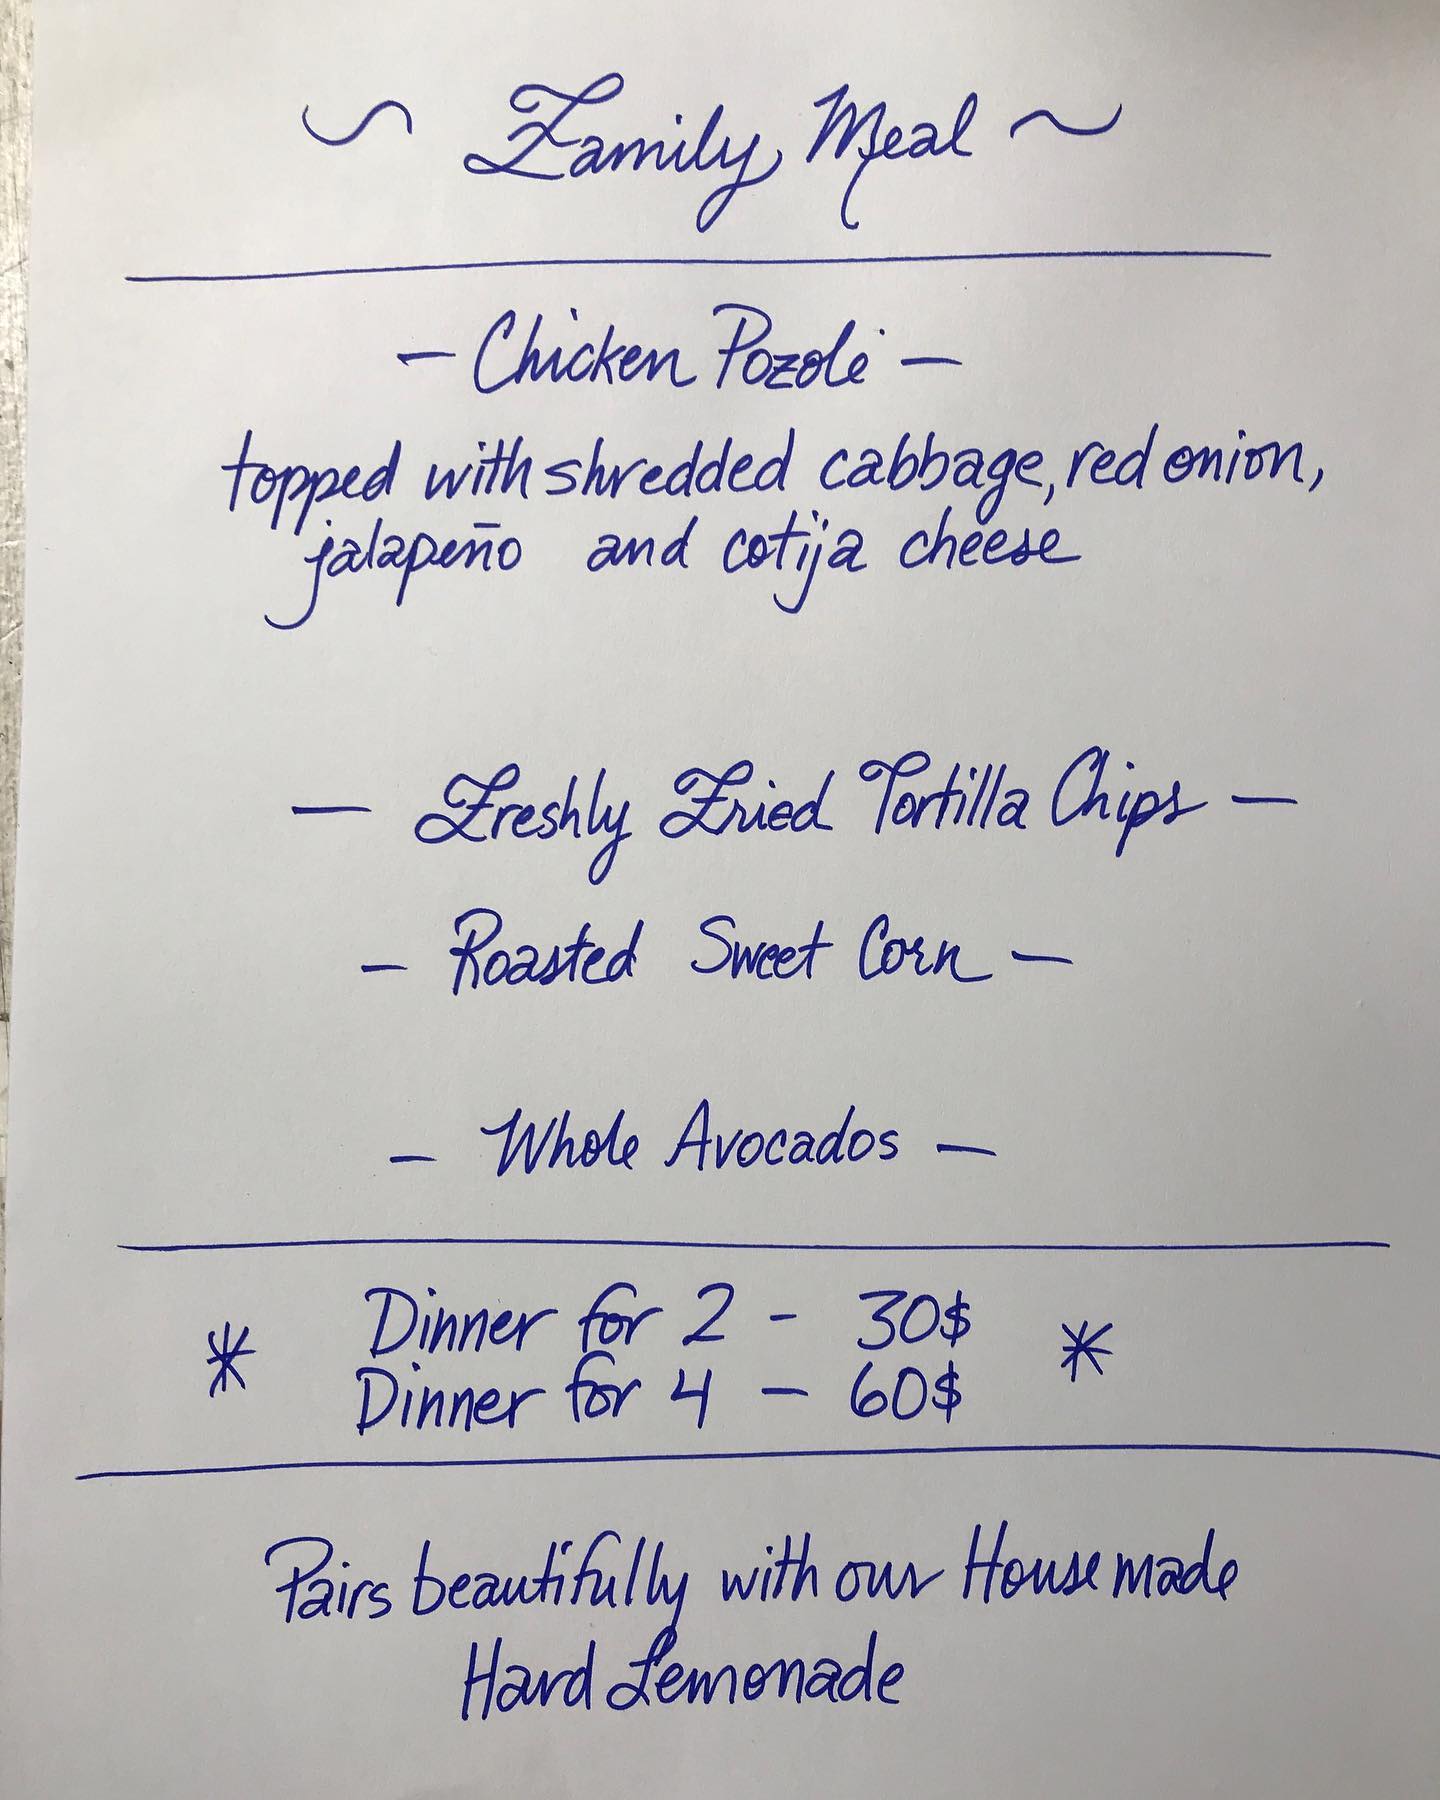 ~ Family Meal ~
- Chicken Pozole -
topped with shredded cabbage, red onion,
jalapeño and cotija cheese
- Freshly Fried Tortilla Chips -
- Roasted Sweet Corn -
- Whole Avocados -
* Dinner for 2 - 30$ *
Dinner for 4 - 60$
Pairs beautifully with our House made
Hard Lemonade